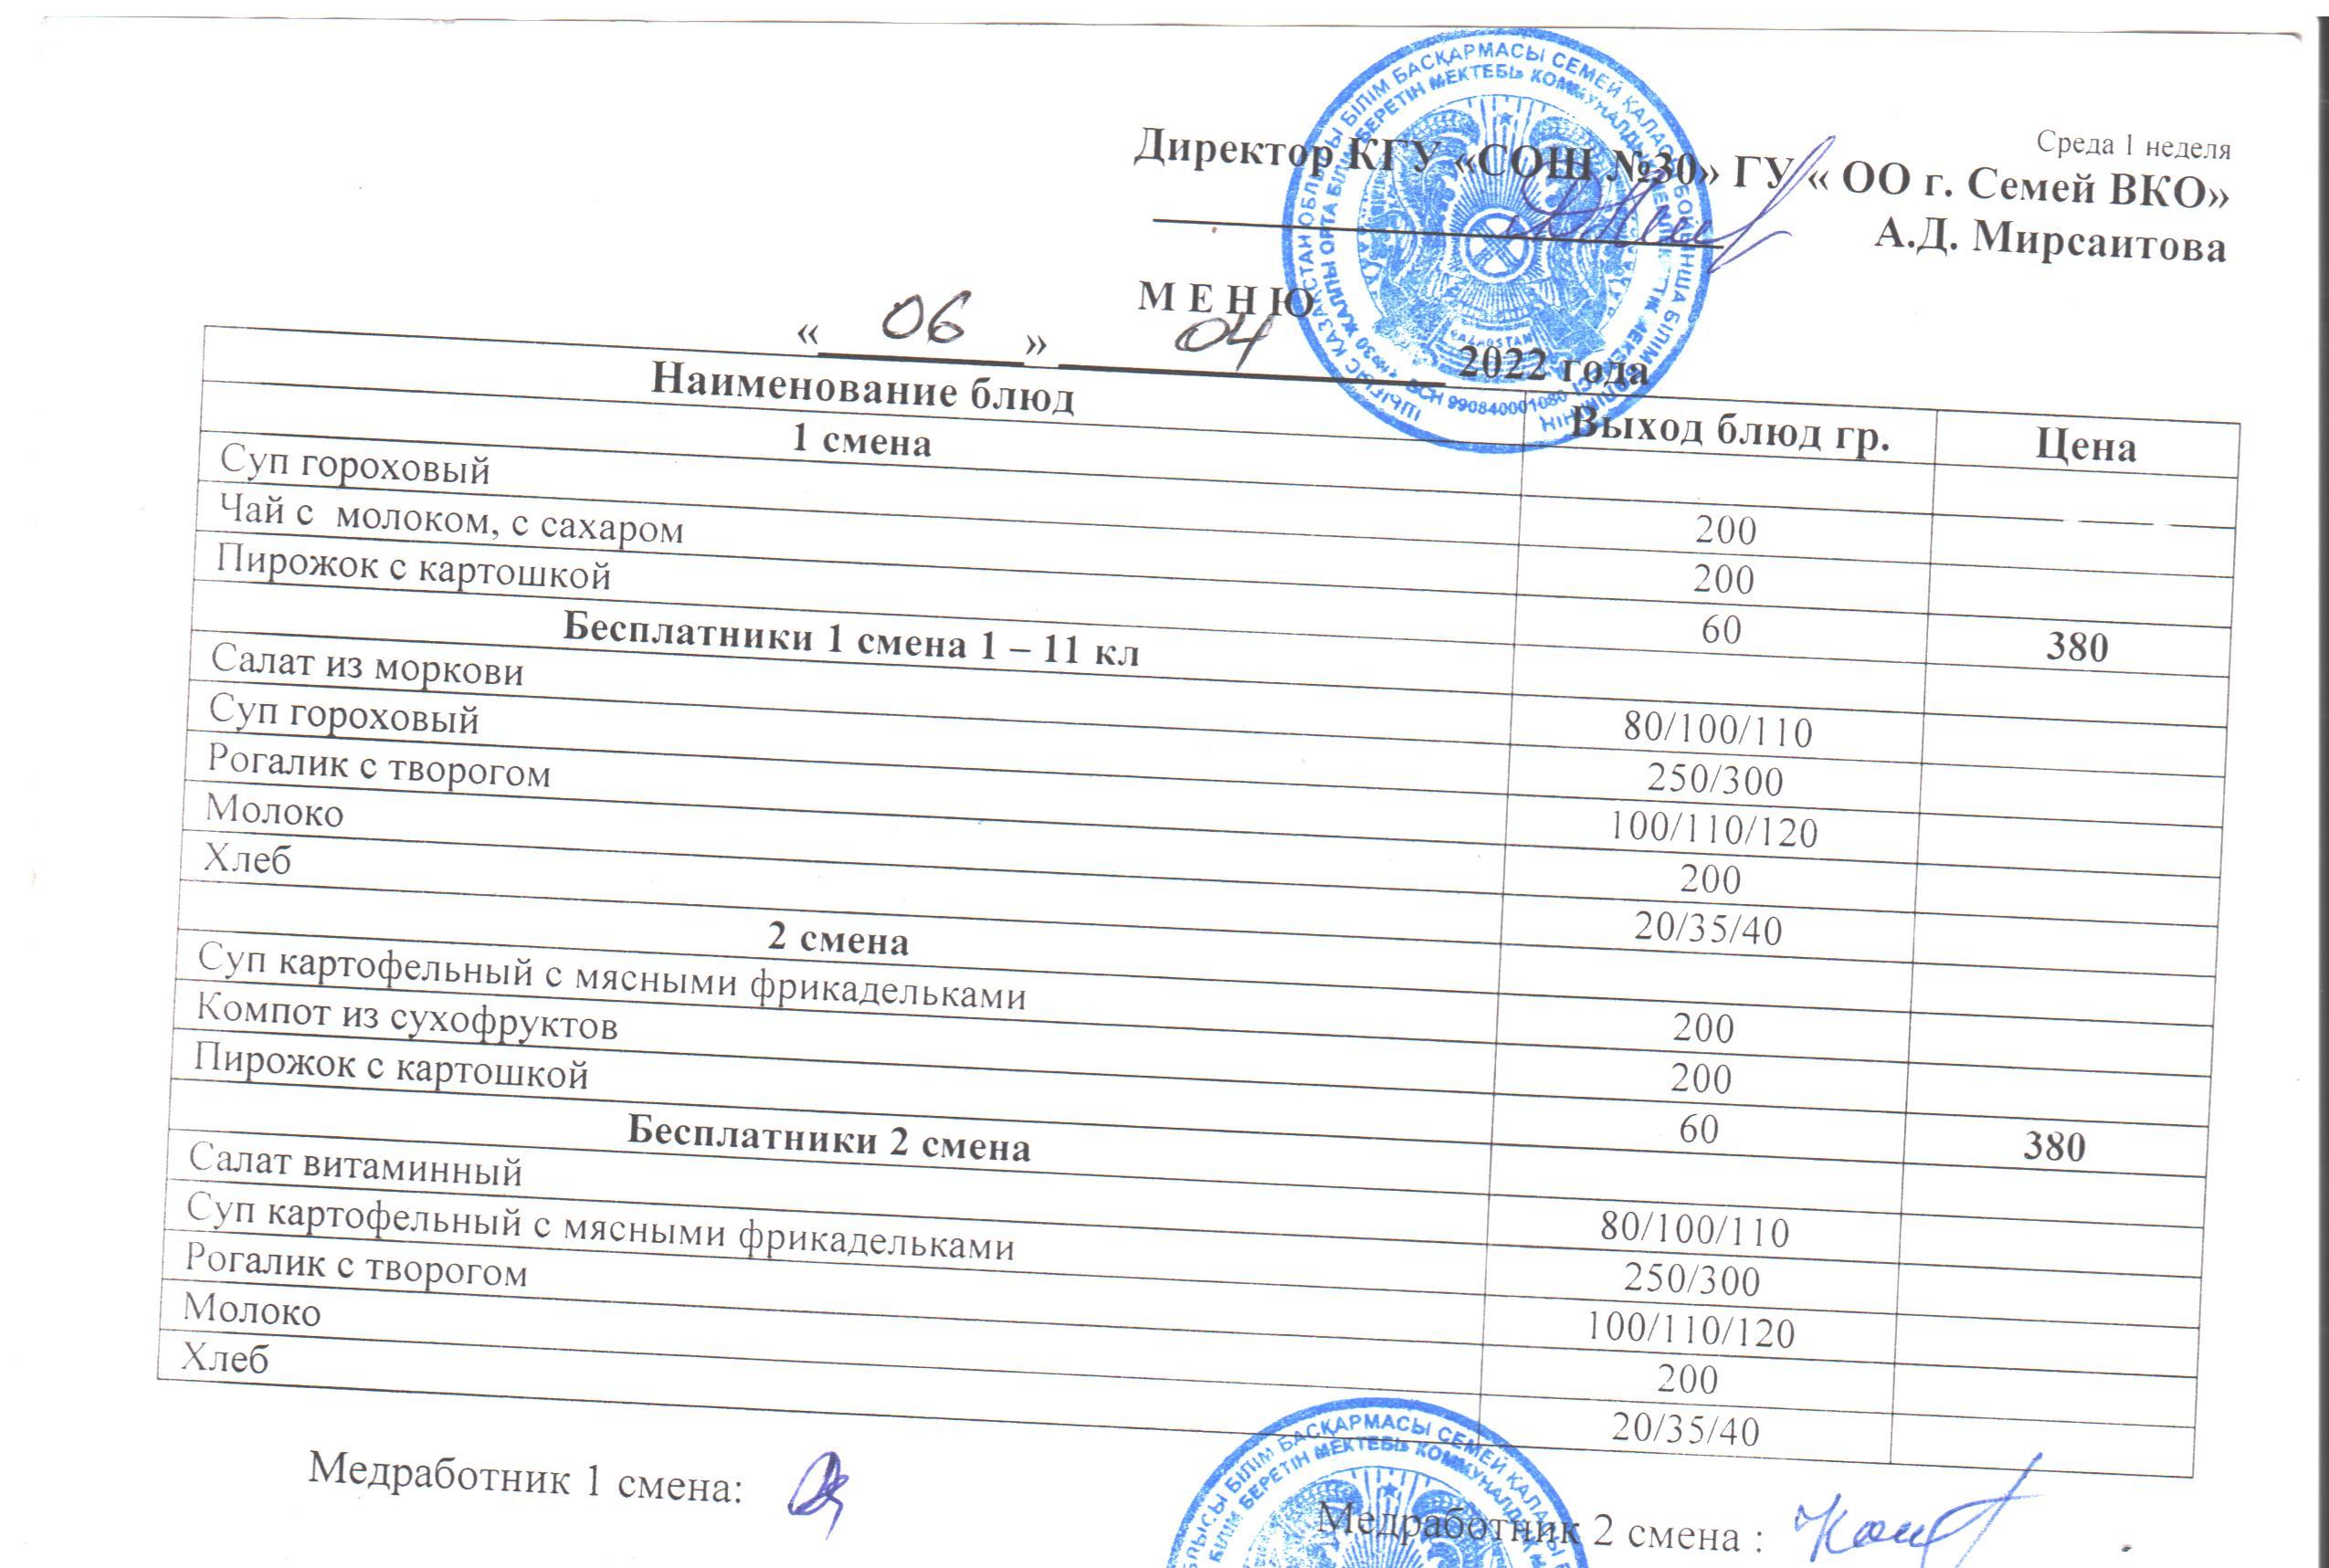 Среда 1 неделя
Директор КГУ «СОШ №30» ГУ « ОО г. Семей ВКО»
А.Д. Мирсаитова
М Е Н Ю
« 06 » 04 2022 года
Наименование блюд Выход блюд гр. Цена
1 смена
Суп гороховый 200
Чай с молоком, с сахаром 200
Пирожок с картошкой 60 380
Бесплатники 1 смена 1 – 11 кл
Салат из моркови 80/100/110
Суп гороховый 250/300
Рогалик с творогом 100/110/120
Молоко 200
Хлеб 20/35/40
2 смена
Суп картофельный с мясными фрикадельками 200
Компот из сухофруктов 200
Пирожок с картошкой 60 380
Бесплатники 2 смена
Салат витаминный 80/100/110
Суп картофельный с мясными фрикадельками 250/300
Рогалик с творогом 100/110/120
Молоко 200
Хлеб 20/35/40
Медработник 1 смена:
Медработник 2 смена :
ШЫҒЫС ҚАЗАҚСТАН ОБЛЫСЫ БІЛІМ БАСҚАРМАСЫ СЕМЕЙ ҚАЛАСЫ БОЙЫНША БІЛІМ
«№30 ЖАЛПЫ ОРТА БІЛІМ БЕРЕТІН МЕКТЕБІ» КОММУНАЛДЫҚ МЕМЛЕКЕТТІК МЕКЕМЕСІ
БСН 990840001080
БІЛІМ БАСҚАРМАСЫ СЕМЕЙ ҚАЛАСЫ
БІЛІМ БЕРЕТІН МЕКТЕБІ» КОММУНАЛДЫҚ